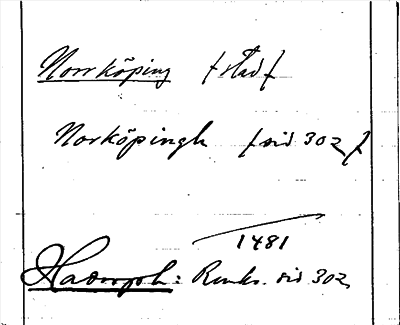 Norrköping [stad]
Norköpingh [sid 302]
1481
Hadorph: Rimkr. sid 302